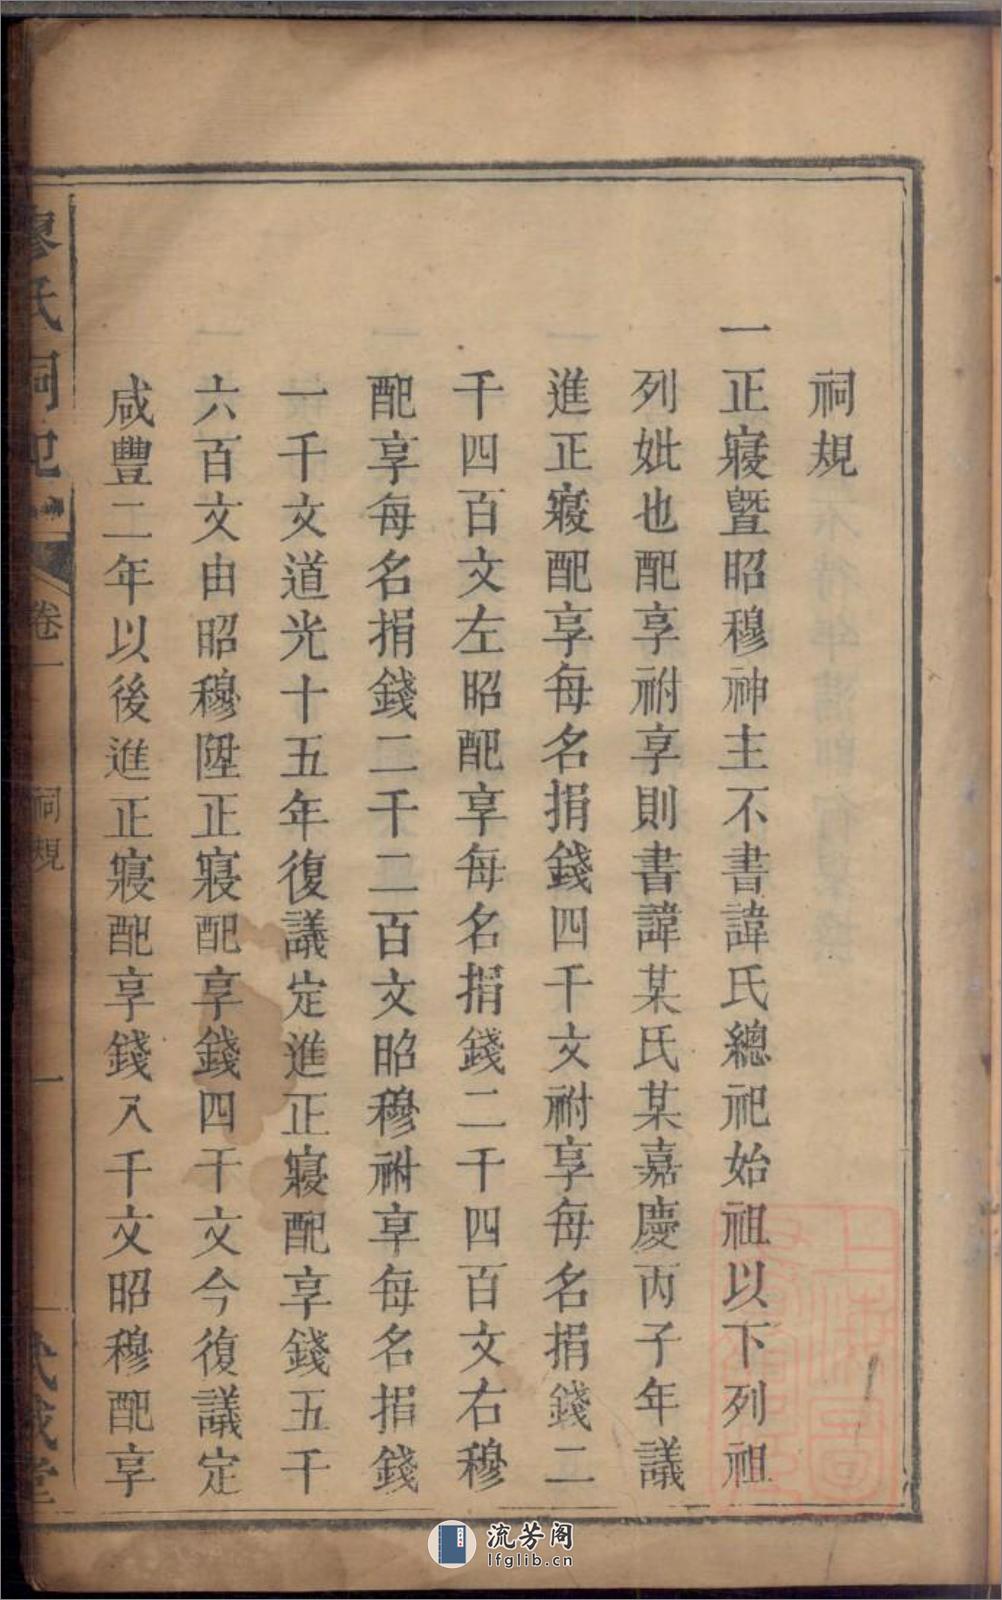 祠規
一正寢曁昭穆神主不書諱氏總祀始祖以下列祖
列妣也配享祔享則書諱某氏某嘉慶丙子年議
進正寢配享每名捐錢四千文祔享每名捐錢二
千四百文左昭配享每名捐錢二千四百文右穆
配享每名捐錢二千二百文昭穆祔享每名捐錢
一千文道光十五年復議定進正寢配享錢五千
六百文由昭穆陞正寢配享錢四千文今復議定
咸豐二年以後進正寢配享錢八千文昭穆配享
廖氏祠記
卷一
祠規
一
武威堂
流芳阁
lfglib.cn